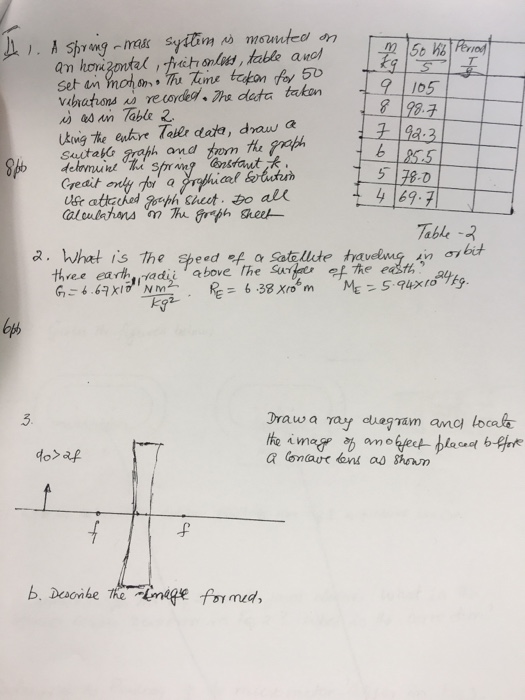 II 1. A spring-mass system is mounted on
an horizontal, frictionless, table and
set in motion. The time taken for 50
vibrations is recorded. The data taken
is as in Table 2.
Using the entire Table data, draw a
suitable graph and from the graph
determine the spring constant k.
Credit only for a graphical solution
Use attached graph sheet. Do all
Calculations on the graph sheet
8pts
m/kg 50 Vib/s Period T/s
9 105
8 98.7
7 92.3
6 85.5
5 78.0
4 69.7
Table-2
2. What is the speed of a satellite traveling in orbit
three earth radii above the surface of the earth?
G = 6.67x10^-11 Nm²/kg². RE = 6.38x10^6 m ME = 5.94x10^24 kg.
6pts
3.
Draw a ray diagram and locate
the image of an object placed before
a concave lens as shown
do>2f
f f
b. Describe the image formed,